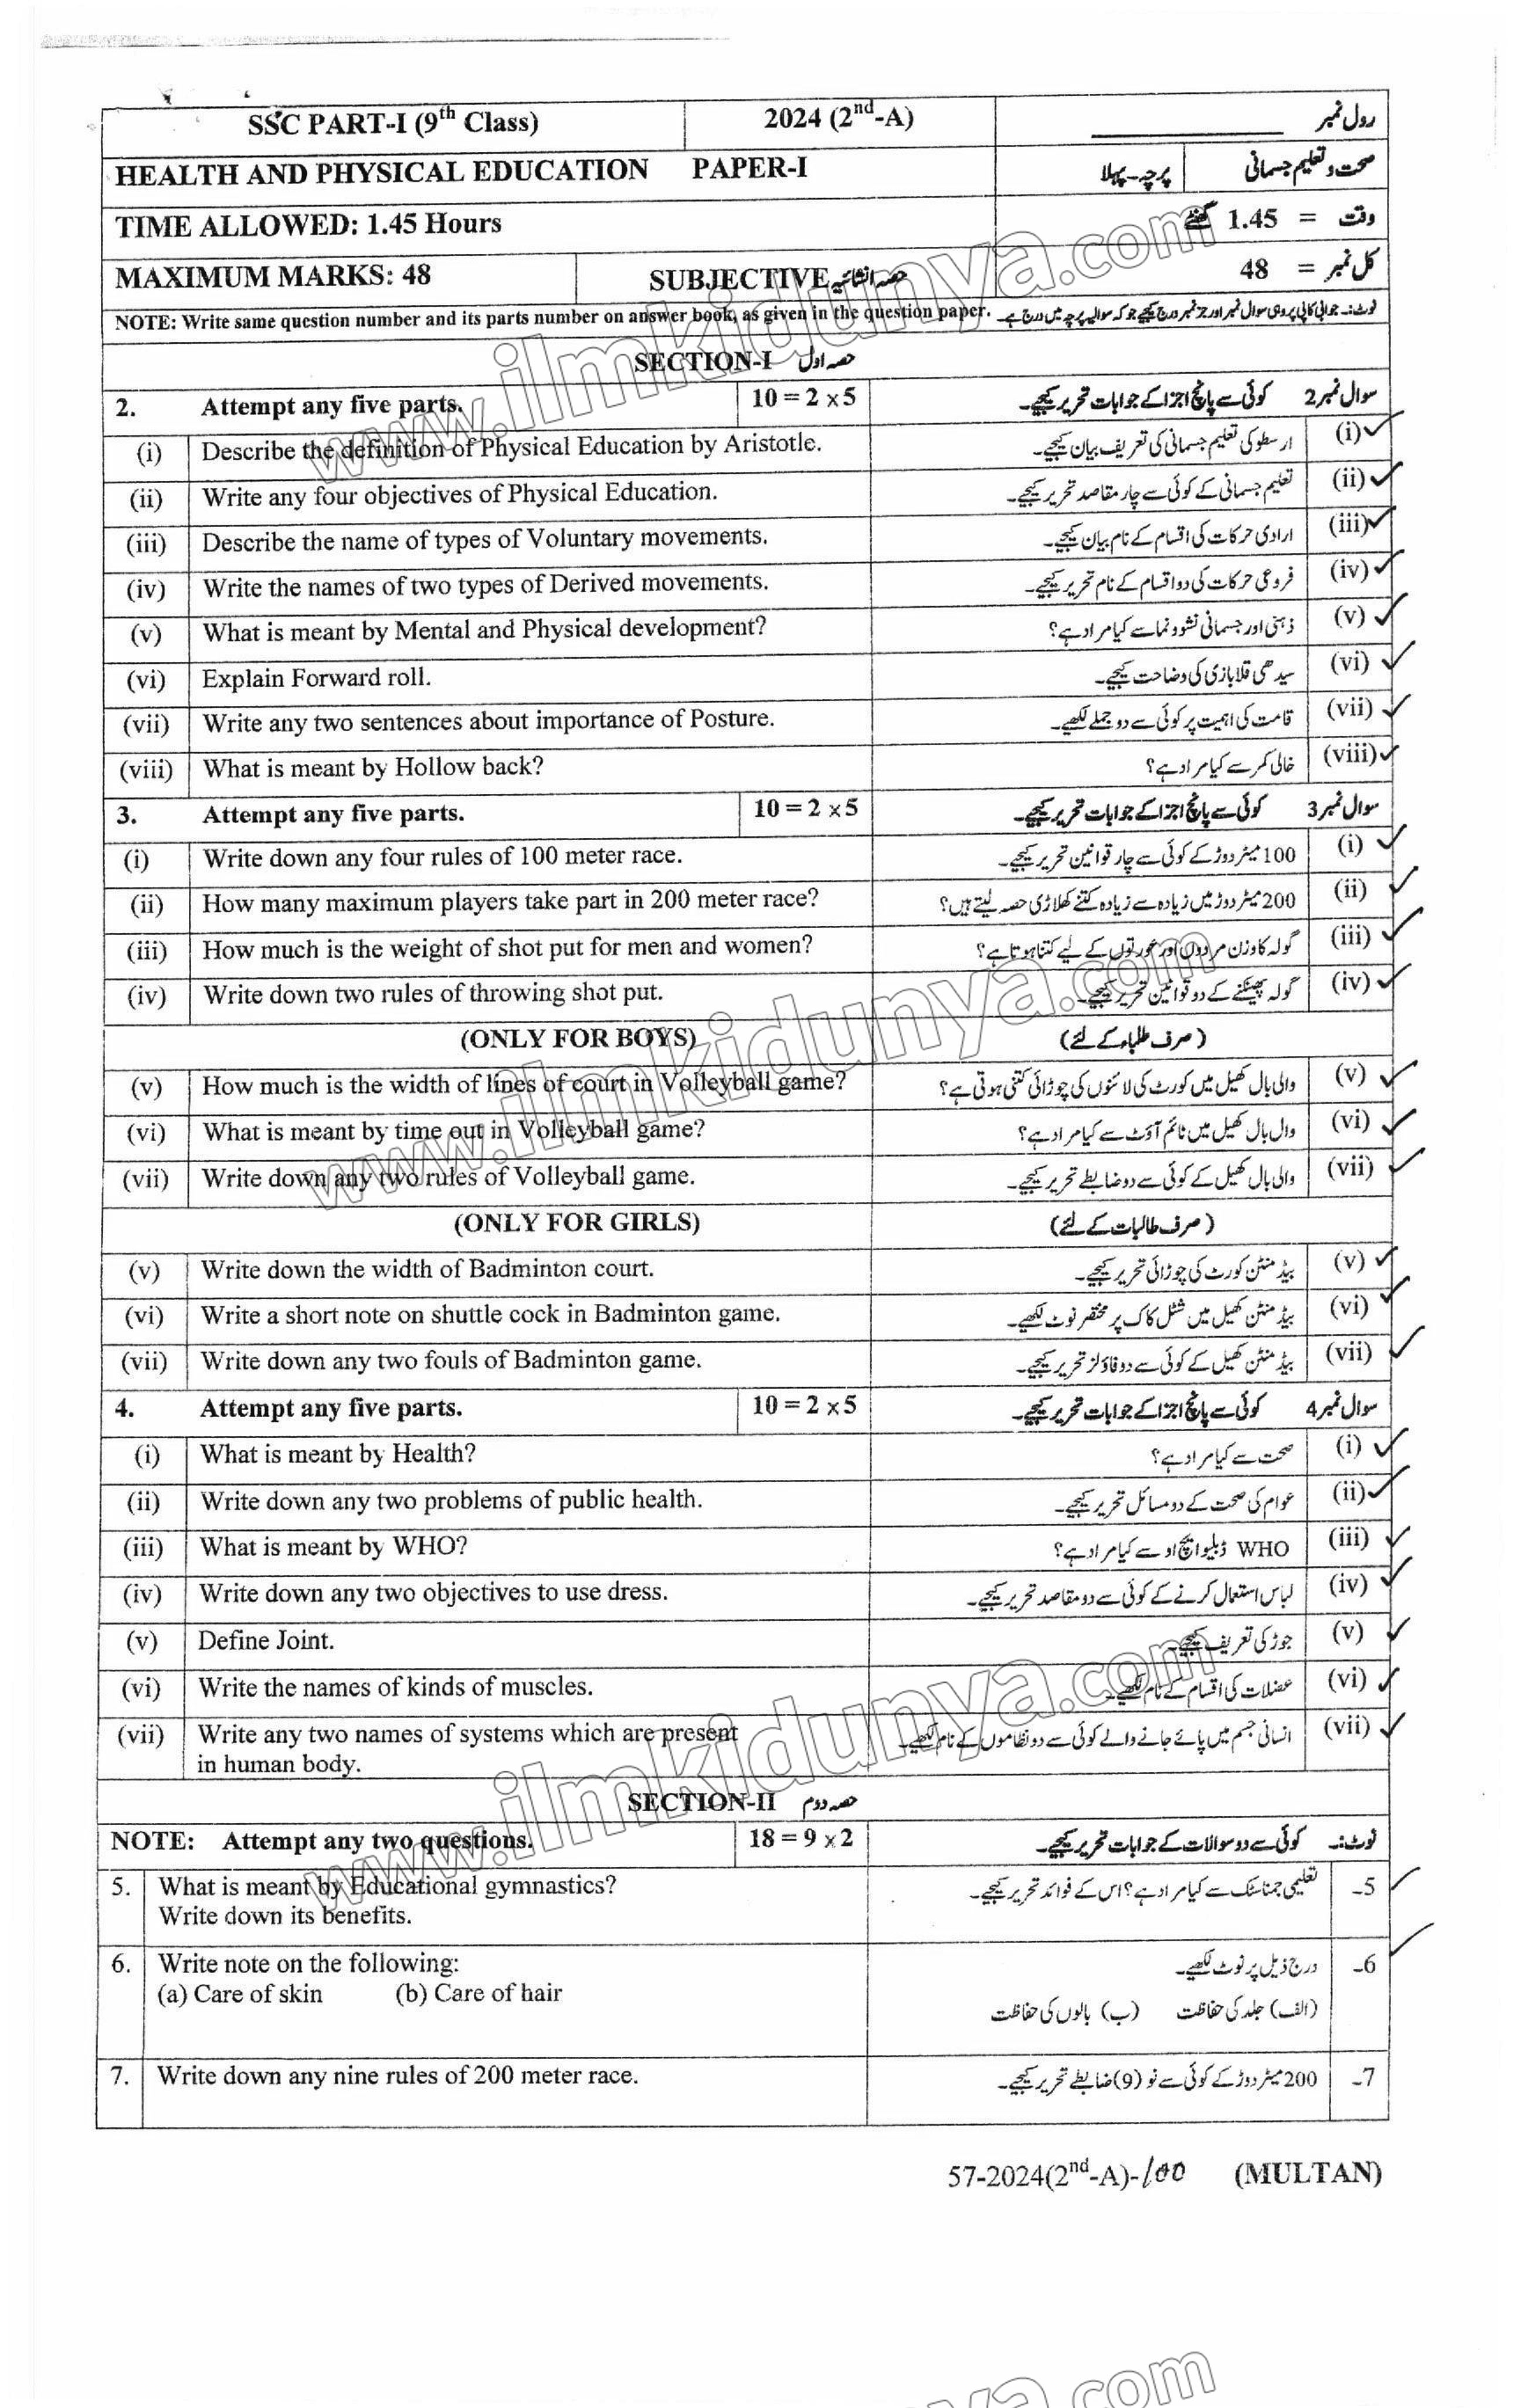 SSC PART-I (9th Class) 2024 (2nd-A) رول نمبر
HEALTH AND PHYSICAL EDUCATION PAPER-I پرچہ - پہلا صحت و تعلیم جسمانی
TIME ALLOWED: 1.45 Hours وقت = 1.45 گھنٹے
MAXIMUM MARKS: 48 SUBJECTIVE حصہ انشائیہ کل نمبر = 48
NOTE: Write same question number and its parts number on answer book, as given in the question paper. نوٹ:۔ جوابی کاپی پر وہی سوال نمبر اور جز نمبر درج کیجیے جو کہ سوالیہ پرچہ میں درج ہے۔
SECTION-I حصہ اول
2. Attempt any five parts. 10 = 2 x 5 کوئی سے پانچ اجزا کے جوابات تحریر کیجیے۔ سوال نمبر 2
(i) Describe the definition of Physical Education by Aristotle. ارسطو کی تعلیم جسمانی کی تعریف بیان کیجیے۔ (i)
(ii) Write any four objectives of Physical Education. تعلیم جسمانی کے کوئی سے چار مقاصد تحریر کیجیے۔ (ii)
(iii) Describe the name of types of Voluntary movements. ارادی حرکات کی اقسام کے نام بیان کیجیے۔ (iii)
(iv) Write the names of two types of Derived movements. فروعی حرکات کی دو اقسام کے نام تحریر کیجیے۔ (iv)
(v) What is meant by Mental and Physical development? ذہنی اور جسمانی نشوونما سے کیا مراد ہے؟ (v)
(vi) Explain Forward roll. سیدھی قلابازی کی وضاحت کیجیے۔ (vi)
(vii) Write any two sentences about importance of Posture. قامت کی اہمیت پر کوئی سے دو جملے لکھیے۔ (vii)
(viii) What is meant by Hollow back? خالی کمر سے کیا مراد ہے؟ (viii)
3. Attempt any five parts. 10 = 2 x 5 کوئی سے پانچ اجزا کے جوابات تحریر کیجیے۔ سوال نمبر 3
(i) Write down any four rules of 100 meter race. 100 میٹر دوڑ کے کوئی سے چار قوانین تحریر کیجیے۔ (i)
(ii) How many maximum players take part in 200 meter race? 200 میٹر دوڑ میں زیادہ سے زیادہ کتنے کھلاڑی حصہ لیتے ہیں؟ (ii)
(iii) How much is the weight of shot put for men and women? گولہ کا وزن مردوں اور عورتوں کے لیے کتنا ہوتا ہے؟ (iii)
(iv) Write down two rules of throwing shot put. گولہ پھینکنے کے دو قوانین تحریر کیجیے۔ (iv)
(ONLY FOR BOYS) (صرف طلباء کے لئے)
(v) How much is the width of lines of court in Volleyball game? والی بال کھیل میں کورٹ کی لائنوں کی چوڑائی کتنی ہوتی ہے؟ (v)
(vi) What is meant by time out in Volleyball game? وال بال کھیل میں ٹائم آؤٹ سے کیا مراد ہے؟ (vi)
(vii) Write down any two rules of Volleyball game. والی بال کھیل کے کوئی سے دو ضابطے تحریر کیجیے۔ (vii)
(ONLY FOR GIRLS) (صرف طالبات کے لئے)
(v) Write down the width of Badminton court. بیڈ منٹن کورٹ کی چوڑائی تحریر کیجیے۔ (v)
(vi) Write a short note on shuttle cock in Badminton game. بیڈ منٹن کھیل میں شٹل کاک پر مختصر نوٹ لکھیے۔ (vi)
(vii) Write down any two fouls of Badminton game. بیڈ منٹن کھیل کے کوئی سے دو فاؤلز تحریر کیجیے۔ (vii)
4. Attempt any five parts. 10 = 2 x 5 کوئی سے پانچ اجزا کے جوابات تحریر کیجیے۔ سوال نمبر 4
(i) What is meant by Health? صحت سے کیا مراد ہے؟ (i)
(ii) Write down any two problems of public health. عوام کی صحت کے دو مسائل تحریر کیجیے۔ (ii)
(iii) What is meant by WHO? WHO ڈبلیو ایچ او سے کیا مراد ہے؟ (iii)
(iv) Write down any two objectives to use dress. لباس استعمال کرنے کے کوئی سے دو مقاصد تحریر کیجیے۔ (iv)
(v) Define Joint. جوڑ کی تعریف کیجیے۔ (v)
(vi) Write the names of kinds of muscles. عضلات کی اقسام کے نام لکھیے۔ (vi)
(vii) Write any two names of systems which are present انسانی جسم میں پائے جانے والے کوئی سے دو نظاموں کے نام لکھیے۔ (vii)
in human body.
SECTION-II حصہ دوم
NOTE: Attempt any two questions. 18 = 9 x 2 کوئی سے دو سوالات کے جوابات تحریر کیجیے۔ نوٹ:۔
5. What is meant by Educational gymnastics? تعلیمی جمناسٹک سے کیا مراد ہے؟ اس کے فوائد تحریر کیجیے۔ 5۔
Write down its benefits.
6. Write note on the following: درج ذیل پر نوٹ لکھیے۔ 6۔
(a) Care of skin (b) Care of hair (الف) جلد کی حفاظت (ب) بالوں کی حفاظت
7. Write down any nine rules of 200 meter race. 200 میٹر دوڑ کے کوئی سے نو (9) ضابطے تحریر کیجیے۔ 7۔
57-2024(2nd-A)-100 (MULTAN)
www.ilmkidunya.com
www.ilmkidunya.com
www.ilmkidunya.com
ya.com